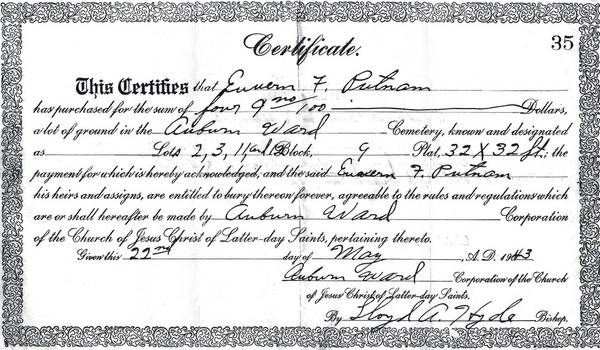 Certificate. 35
This Certifies that Euvern F. Putnam
has purchased for the sum of four & no/100 Dollars,
a lot of ground in the Auburn Ward Cemetery, known and designated
as Lots 2, 3, 11, and 12 Block, 9 Plat, 32 X 32 ft. the
payment for which is hereby acknowledged, and the said Euvern F. Putnam
his heirs and assigns, are entitled to bury thereon forever, agreeable to the rules and regulations which
are or shall hereafter be made by Auburn Ward Corporation
of the Church of Jesus Christ of Latter-day Saints, pertaining thereto.
Given this 22nd day of May, A.D. 1943
Auburn Ward Corporation of the Church
of Jesus Christ of Latter-day Saints.
By Lloyd A. Hyde Bishop.